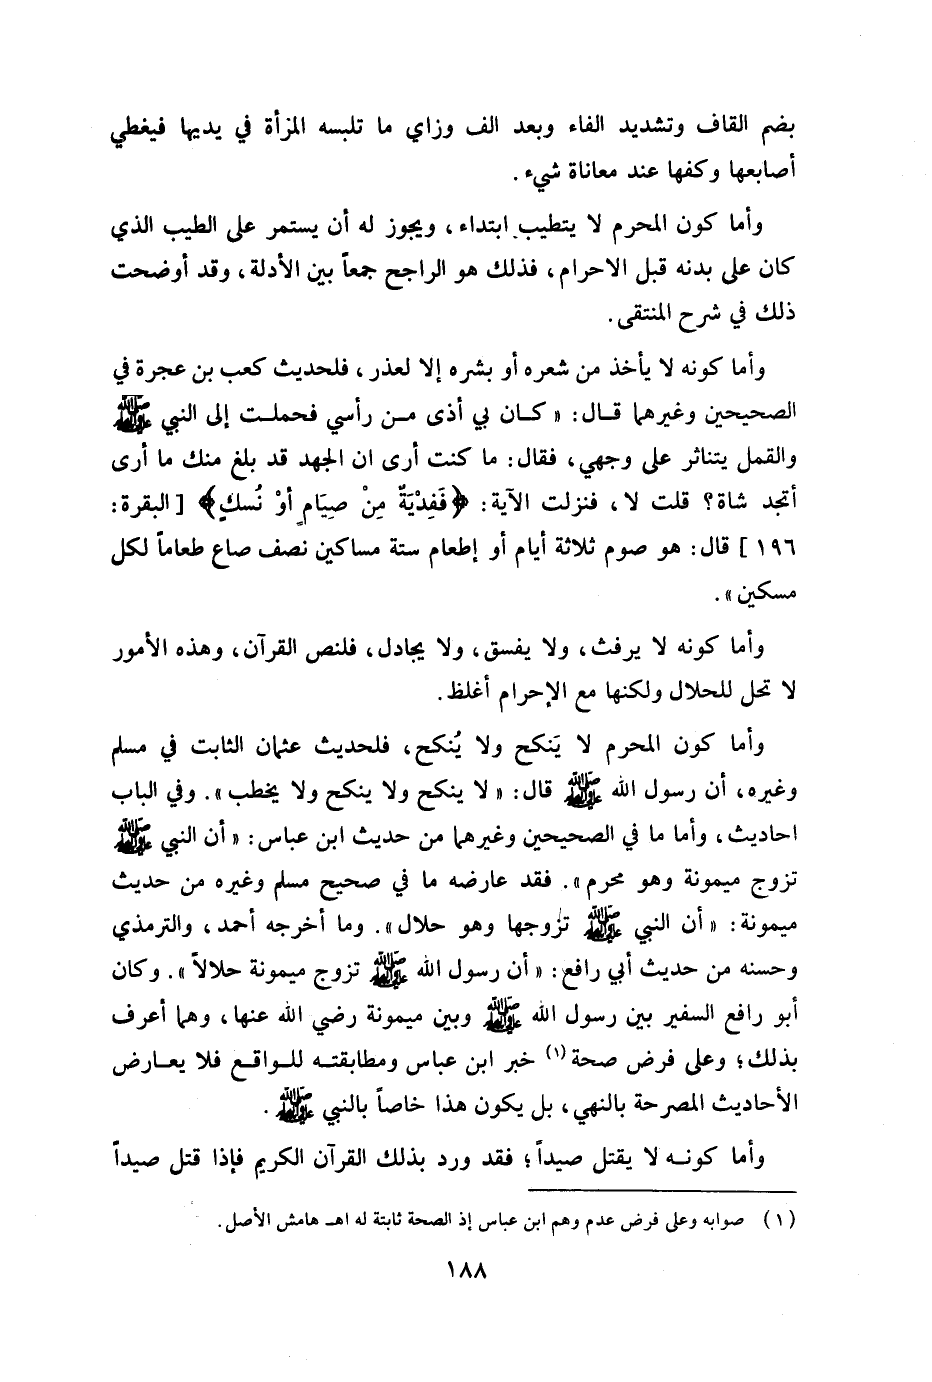 بضم القاف وتشديد الفاء وبعد الف وزاي ما تلبسه المرأة في يديها فيغطي
أصابعها وكفها عند معاناة شيء .
وأما كون المحرم لا يتطيب ابتداء ، ويجوز له أن يستمر على الطيب الذي
كان على بدنه قبل الاحرام ، فذلك هو الراجح جمعاً بين الأدلة ، وقد أوضحت
ذلك في شرح المنتقى .
وأما كونه لا يأخذ من شعره أو بشره إلا لعذر ، فلحديث كعب بن عجرة في
الصحيحين وغيرهما قال : « كان بي أذى من رأسي فحملت إلى النبي ﷺ
والقمل يتناثر على وجهي ، فقال : ما كنت أرى ان الجهد قد بلغ منك ما أرى
أتجد شاة ؟ قلت لا ، فنزلت الآية : ﴿فَفِدْيَةٌ مِنْ صِيَامٍ أوْ نُسكٍ﴾ [ البقرة :
١٩٦ ] قال : هو صوم ثلاثة أيام أو إطعام ستة مساكين نصف صاع طعاماً لكل
مسكين » .
وأما كونه لا يرفث ، ولا يفسق ، ولا يجادل ، فلنص القرآن ، وهذه الأمور
لا تحل للحلال ولكنها مع الإحرام أغلظ .
وأما كون المحرم لا يَنكح ولا يُنكح ، فلحديث عثمان الثابت في مسلم
وغيره ، أن رسول الله ﷺ قال : « لا ينكح ولا ينكح ولا يخطب » . وفي الباب
احاديث ، وأما ما في الصحيحين وغيرهما من حديث ابن عباس : « أن النبي ﷺ
تزوج ميمونة وهو محرم » . فقد عارضه ما في صحيح مسلم وغيره من حديث
ميمونة : « أن النبي ﷺ تزوجها وهو حلال » . وما أخرجه أحمد ، والترمذي
وحسنه من حديث أبي رافع : « أن رسول الله ﷺ تزوج ميمونة حلالاً » . وكان
أبو رافع السفير بين رسول الله ﷺ وبين ميمونة رضي الله عنها ، وهما أعرف
بذلك ؛ وعلى فرض صحة (١) خبر ابن عباس ومطابقته للواقع فلا يعارض
الأحاديث المصرحة بالنهي ، بل يكون هذا خاصاً بالنبي ﷺ .
وأما كونه لا يقتل صيداً ؛ فقد ورد بذلك القرآن الكريم فإذا قتل صيداً
(١) صوابه وعلى فرض عدم وهم ابن عباس إذ الصحة ثابتة له اهـ هامش الأصل .
١٨٨